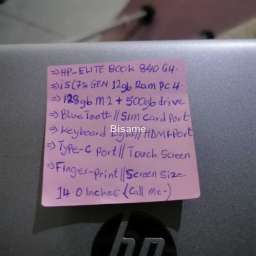 ⇒ HP-ELITE BOOK 840 G4-
⇒ i5(7th GEN 12gb Ram PC4
⇒ 128gb M2 + 500gb drive
⇒ Bluetooth // SIM Card Port
⇒ Keyboard Light // HDMI Port
Bisame
⇒ Type-C Port // Touch Screen
⇒ Finger-Print // Screen Size-
14.0 Inches (Call Me-)
hp